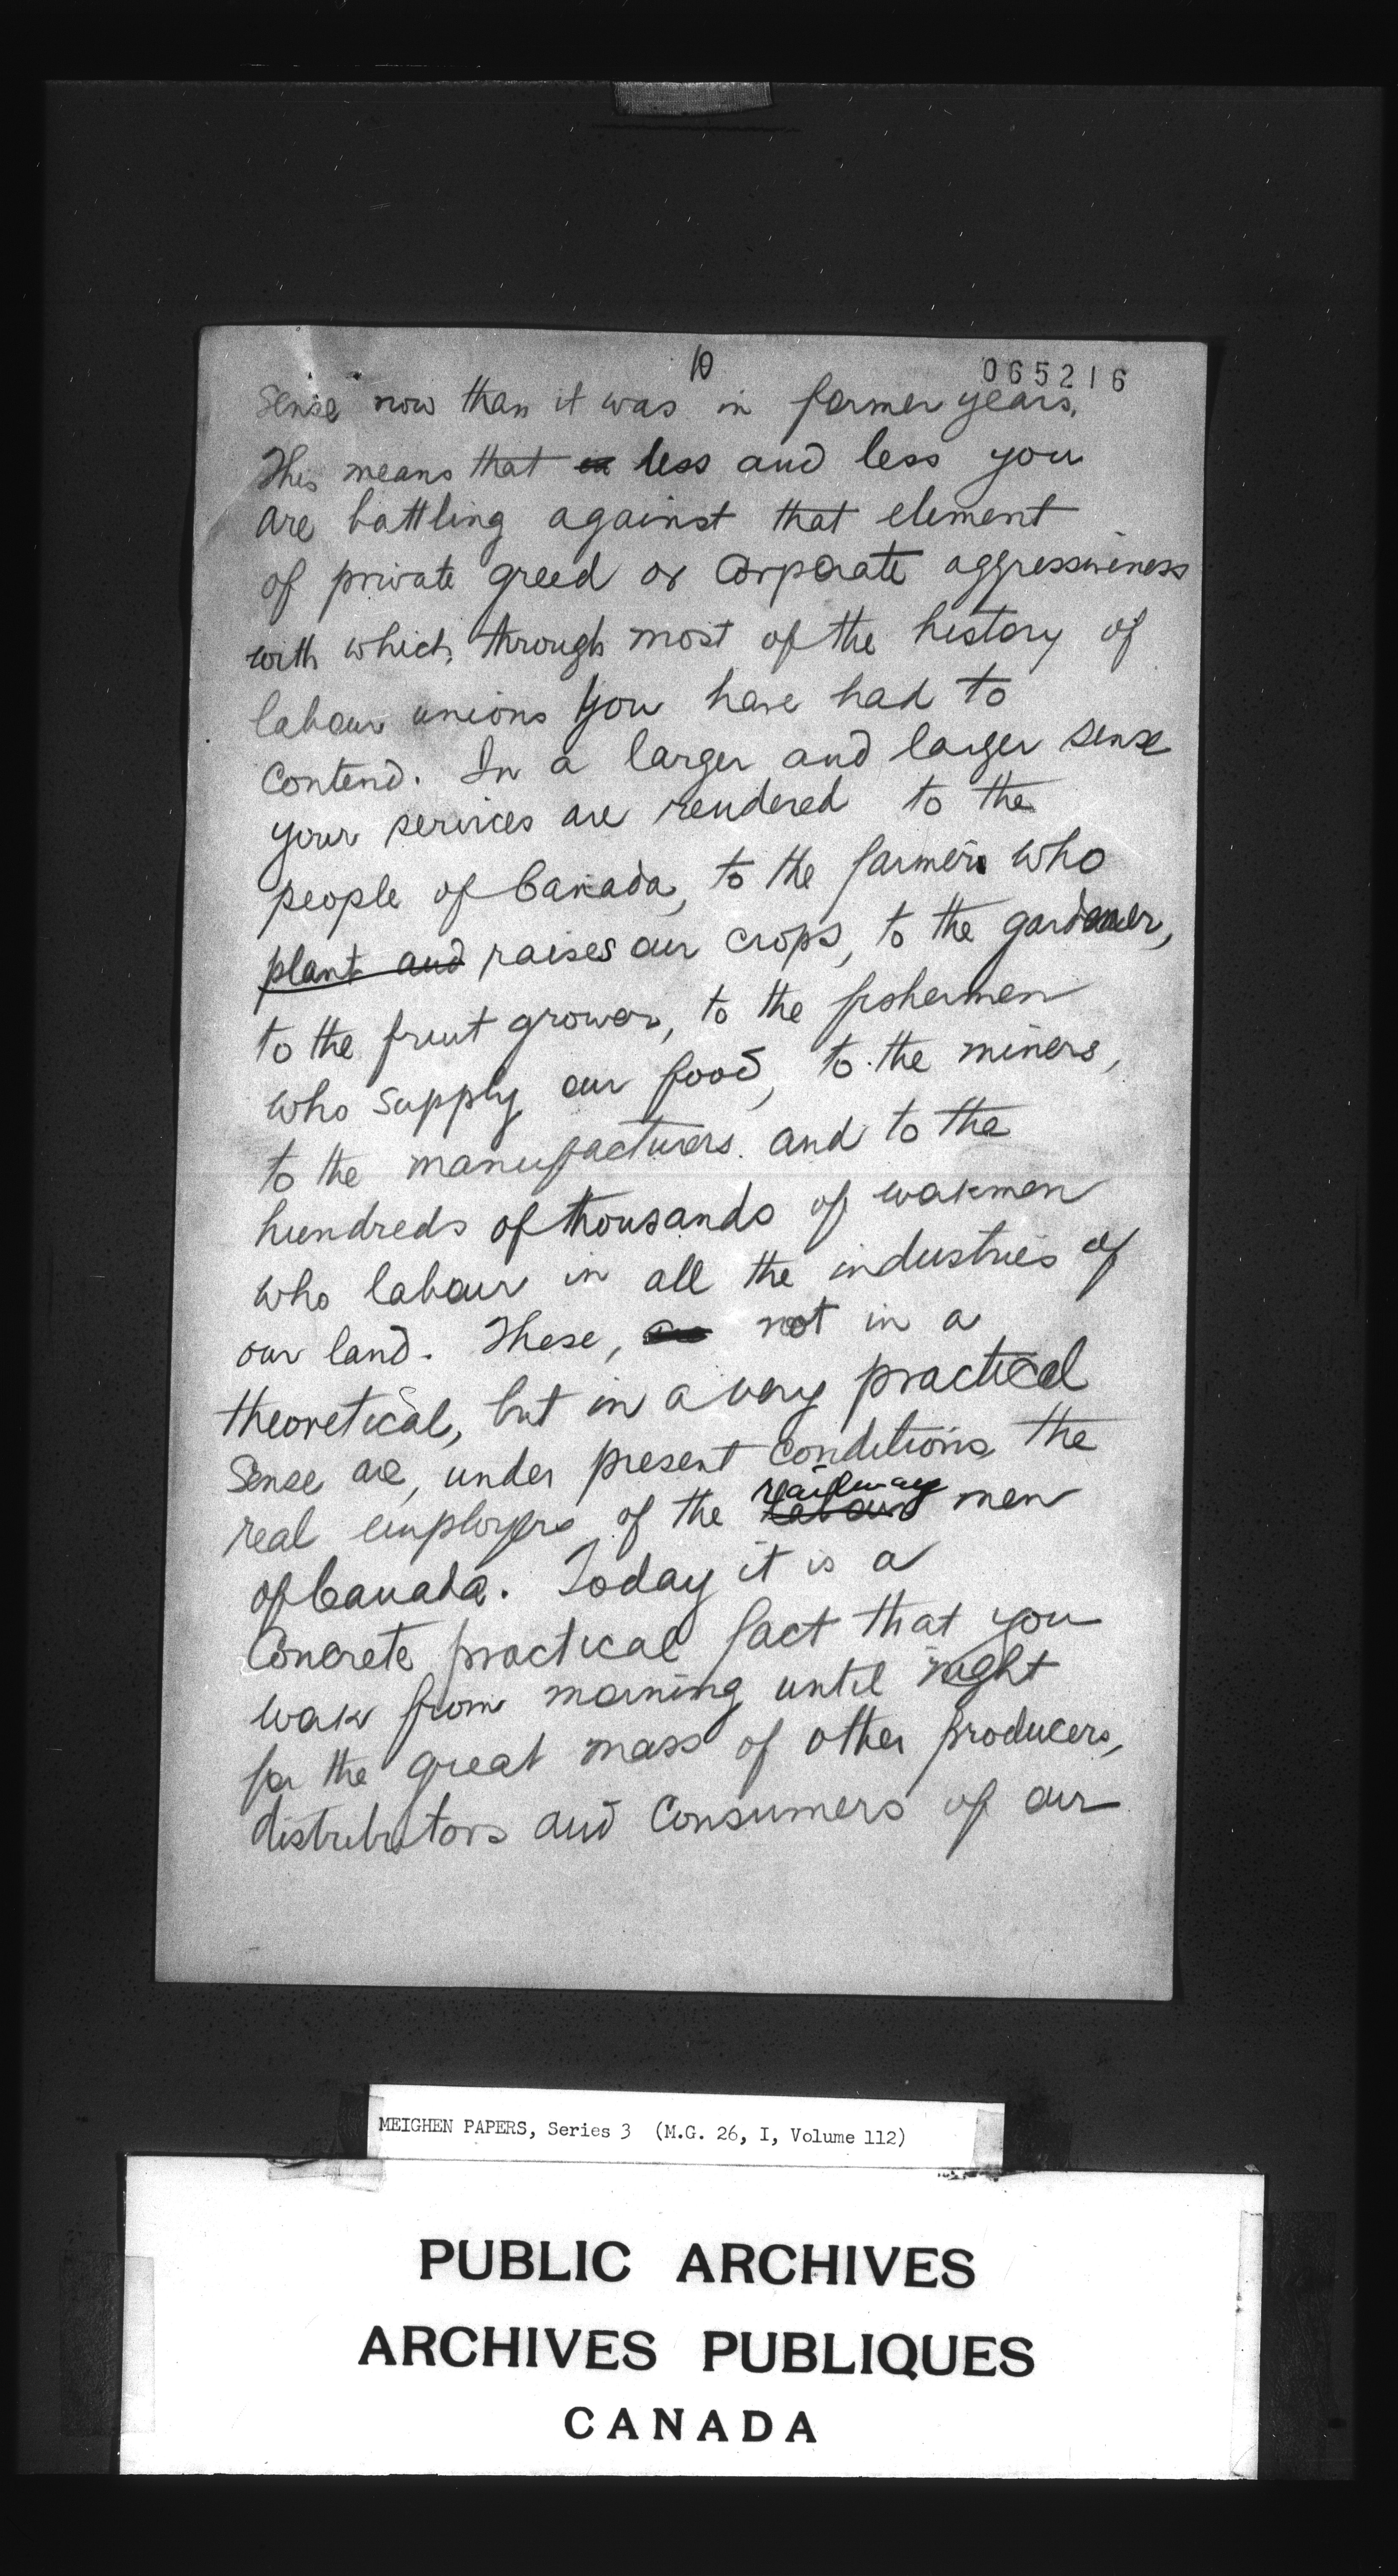 10
065216
sense now than it was in former years.
This means that in less and less you
are battling against that element
of private greed or corporate aggressiveness
with which, through most of the history of
labour unions you have had to
contend. In a larger and larger sense
your services are rendered to the
people of Canada, to the farmer who
plant and raises our crops, to the gardener,
to the fruit grower, to the fishermen
who supply our food, to the miners,
to the manufacturers and to the
hundreds of thousands of workmen
who labour in all the industries of
our land. These, are not in a
theoretical, but in a very practical
sense are, under present conditions, the
railway
real employers of the labour men
of Canada. Today it is a
concrete practical fact that you
work from morning until night
for the great mass of other producers,
distributors and consumers of our
MEIGHEN PAPERS, Series 3 (M.G. 26, I, Volume 112)
PUBLIC ARCHIVES
ARCHIVES PUBLIQUES
CANADA